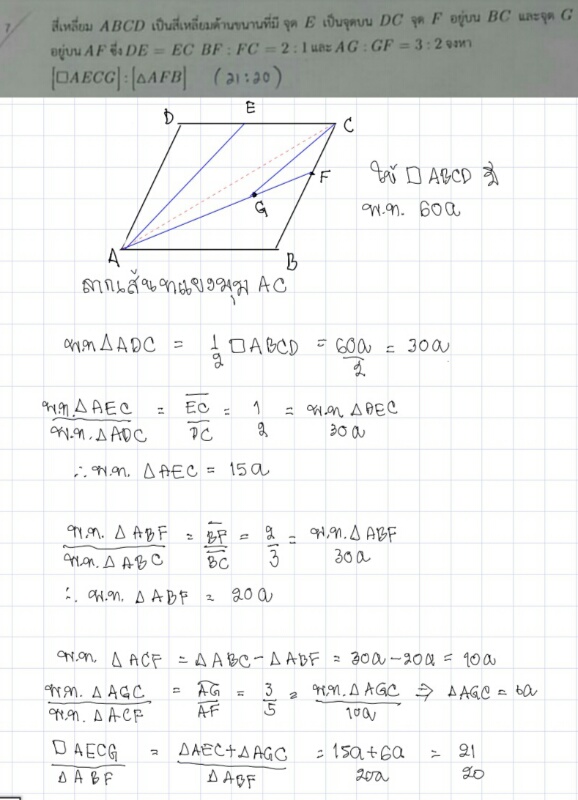 7
สี่เหลี่ยม ABCD เป็นสี่เหลี่ยมด้านขนานที่มี จุด E เป็นจุดบน DC จุด F อยู่บน BC และจุด G
อยู่บน AF ซึ่ง DE = EC BF : FC = 2 : 1 และ AG : GF = 3 : 2 จงหา
[□AECG] : [△AFB] (21:20)
D E C
F
G
A B
ให้ □ ABCD มี
พ.ท. 60a
ลากเส้นทแยงมุม AC
พ.ท △ADC = 1/2 □ABCD = 60a/2 = 30a
พ.ท.△AEC/พ.ท.△ADC = EC/DC = 1/2 = พ.ท △AEC/30a
∴ พ.ท. △AEC = 15a
พ.ท. △ABF/พ.ท. △ABC = BF/BC = 2/3 = พ.ท.△ABF/30a
∴ พ.ท. △ABF = 20a
พ.ท. △ACF = △ABC - △ABF = 30a - 20a = 10a
พ.ท. △AGC/พ.ท. △ACF = AG/AF = 3/5 = พ.ท.△AGC/10a ⇒ △AGC = 6a
□AECG/△ABF = △AEC+△AGC/△ABF = 15a+6a/20a = 21/20